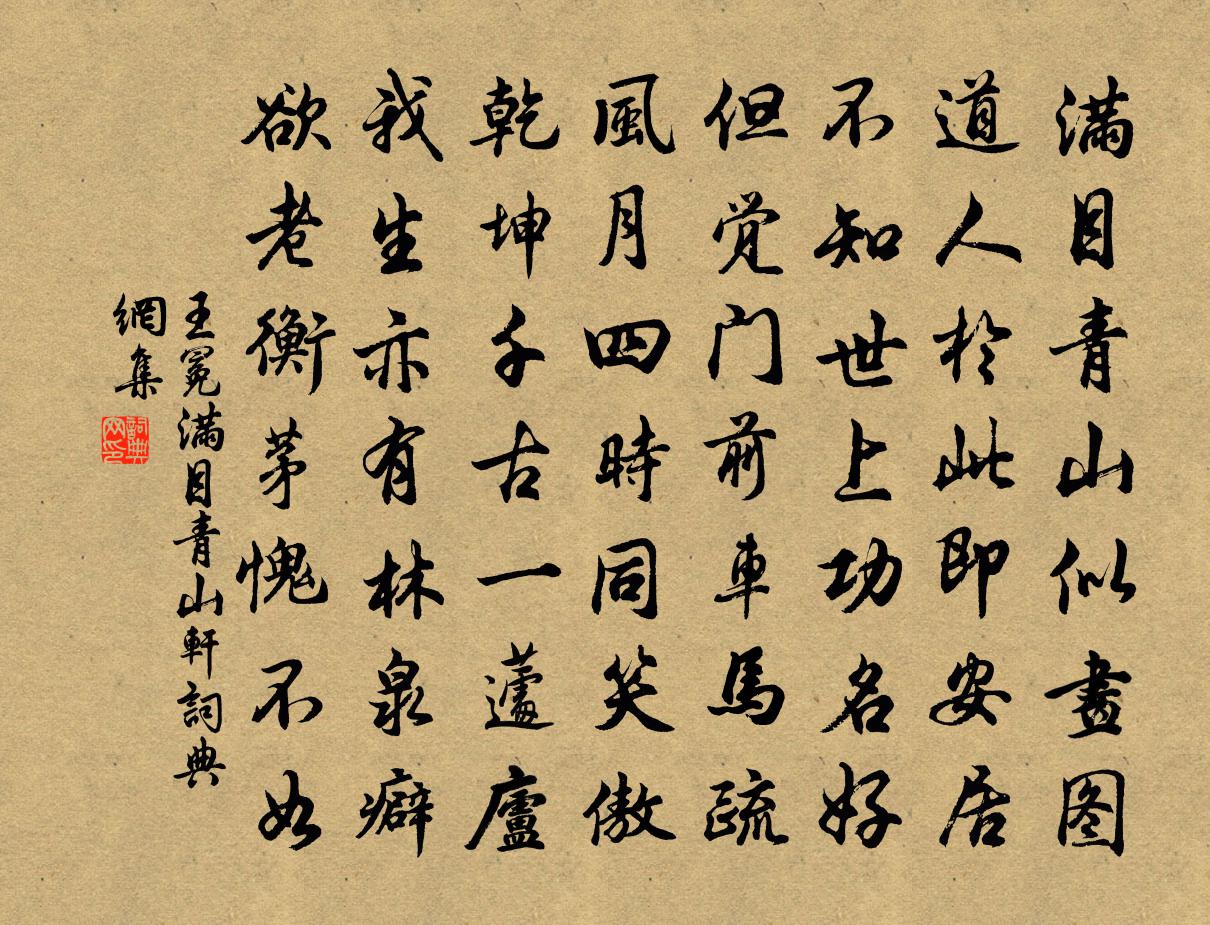 满目青山似畫图
道人於此即安居
不知世上功名好
但觉门前車馬疏
風月四時同笑傲
乾坤千古一蘧廬
我生亦有林泉癖
欲老衡茅愧不如
王冕满目青山軒詞典
網集
詞典
网印